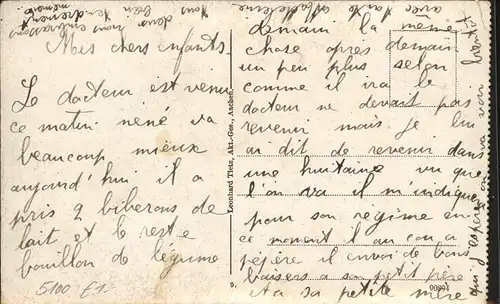 Mes chers enfants.
Le docteur est venu
ce matin néné va
beaucoup mieux
aujord'hui il a
pris 2 biberons de
lait et le reste
bouillon de légume
demain la même
chose apres demain
un peu plus selon
comme il ira le
docteur ne devait pas
revenir mais je lui
ai dit de revenir dans
une huitaine vu que
l'on va il m'indique
pour son régime en
ce moment
il envoi de bons
baisers a son petit père
et a sa petite mère
qui j'espère
bientot
avec tante Madeleine
nous embrassons
tendrement
mémère
Leonhard Tietz, Akt.-Ges., Aachen.
9.
90894
5100